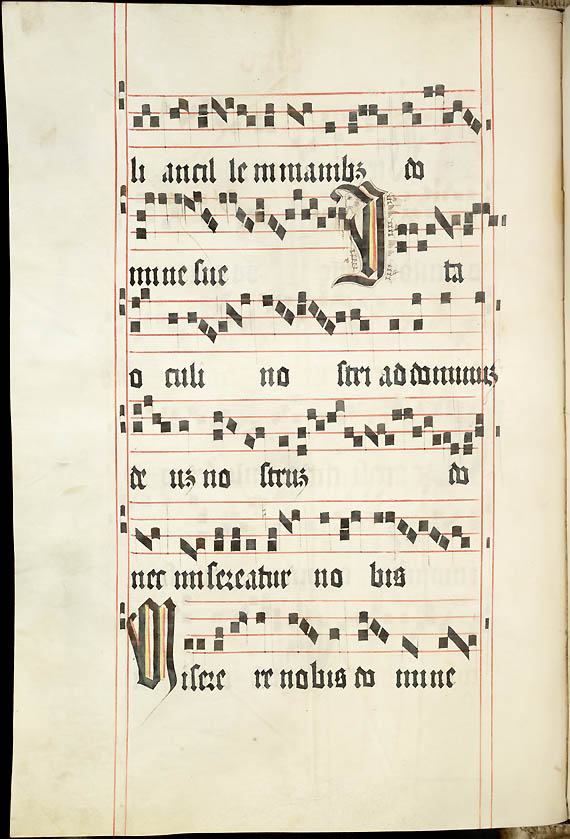 li ancil le in manibꝫ do
mine sue Ita
o culi no stri ad dominuꝫ
de uꝫ no struꝫ do
nec misereatur no bis
Misere re nobis do mine